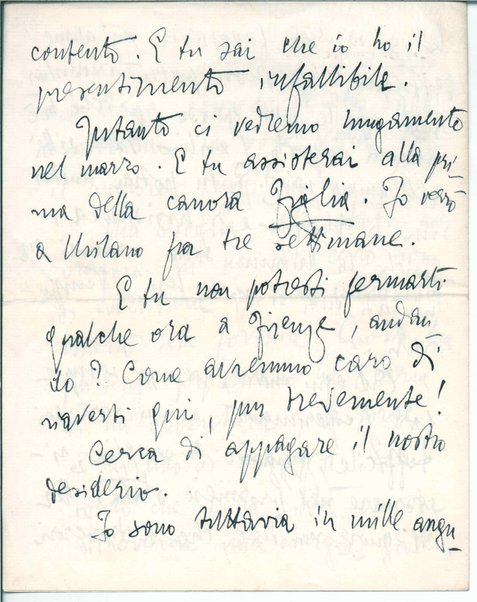 contento. E tu sai che io ho il
presentimento infallibile.
Intanto ci vedremo lungamente
nel marzo. E tu assisterai alla pri-
ma della canora Figlia. Io verrò
a Milano fra tre settimane.
E tu non potresti fermarti
qualche ora a Firenze, andan-
do? Come avremmo caro di
riaverti qui, pur brevemente!
Cerca di appagare il nostro
desiderio.
Io sono tuttavia in mille angu-